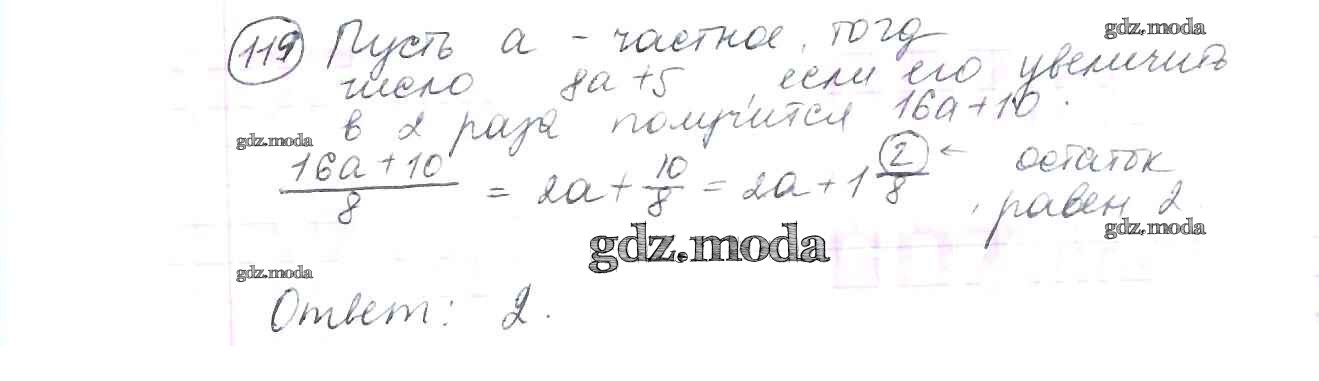 119 Пусть a - частное, тогд
gdz.moda
число 8a+5, если его увеличить
в 2 раза получится 16a+10.
gdz.moda
(16a+10)/8 = 2a + 10/8 = 2a + 1 2/8 ← остаток
, равен 2.
gdz.moda
gdz.moda
gdz.moda
Ответ: 2.